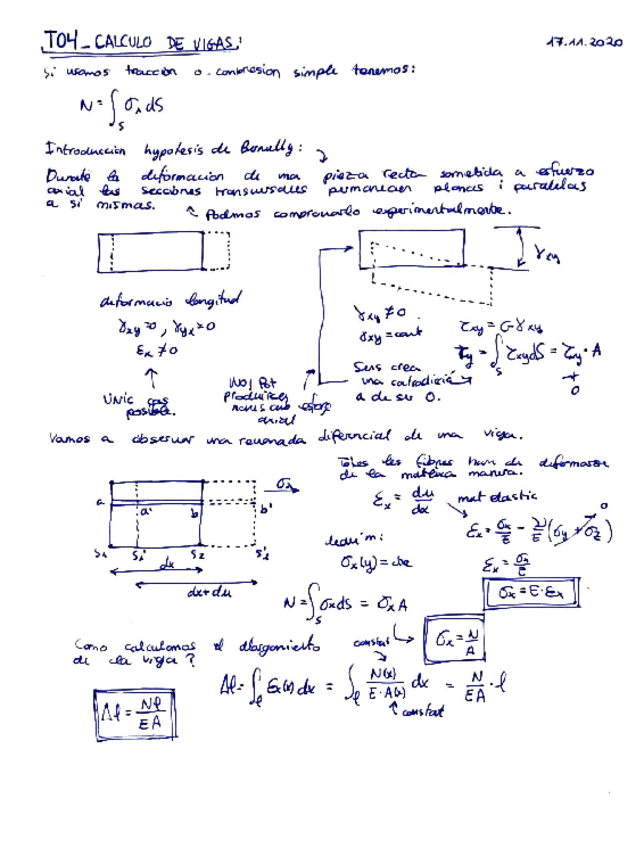 T04_CALCULO DE VIGAS: 17.11.2020
Si usamos tracción o compresion simple tenemos:
N = ∫_S σx dS
Introduccion hypotesis de Bernully:
Durante la deformacion de una pieza recta sometida a esfuerzo
axial las secciones transversales permanecen planas i paralelas
a si mismas.
Podmos compronarlo experimentalmente.
γxy
deformacio longitud
γxy=0, γyx=0
εx ≠ 0
UNIC cas
possible.
NO! Pot
produirse
esforç
axial
γxy ≠ 0
γxy = cont
τxy = G γxy
Ty = ∫_S τxy dS = τxy · A
≠
0
Sens crea
una catradiccia
a de ser 0.
Vamos a observar una revanada diferencial de una viga.
a a' b b'
σx
S1 S1' S2 S2'
dx
dx+du
Totes les fibres han de deformarse
de la mateixa manera.
εx = du/dx
mat elastic
εx = σx/E - ν/E (σy + σz) 0
εx = σx/E
σx = E · εx
σx(y) = cte
N = ∫_S σx dS = σx A
σx = N/A
Como calculamos el alargamiento
de la viga?
constat
Δl = ∫_l εx(x) dx = ∫_l N(x)/(E·A(x)) dx = N/EA · l
constat
Δl = Nl/EA